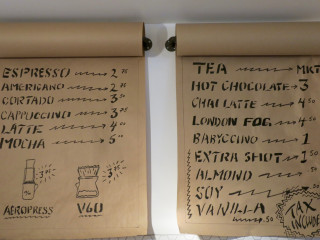 ESPRESSO 2
AMERICANO 2
CORTADO 3
CAPPUCCINO 3
LATTE 4
MOCHA 5
AEROPRESS
V60
TEA MKT
HOT CHOCOLATE 3
CHAI LATTE 4
LONDON FOG 4
BABYCCINO 1
EXTRA SHOT 1
ALMOND .50
SOY .50
VANILLA .50
TAX
INCLUDE